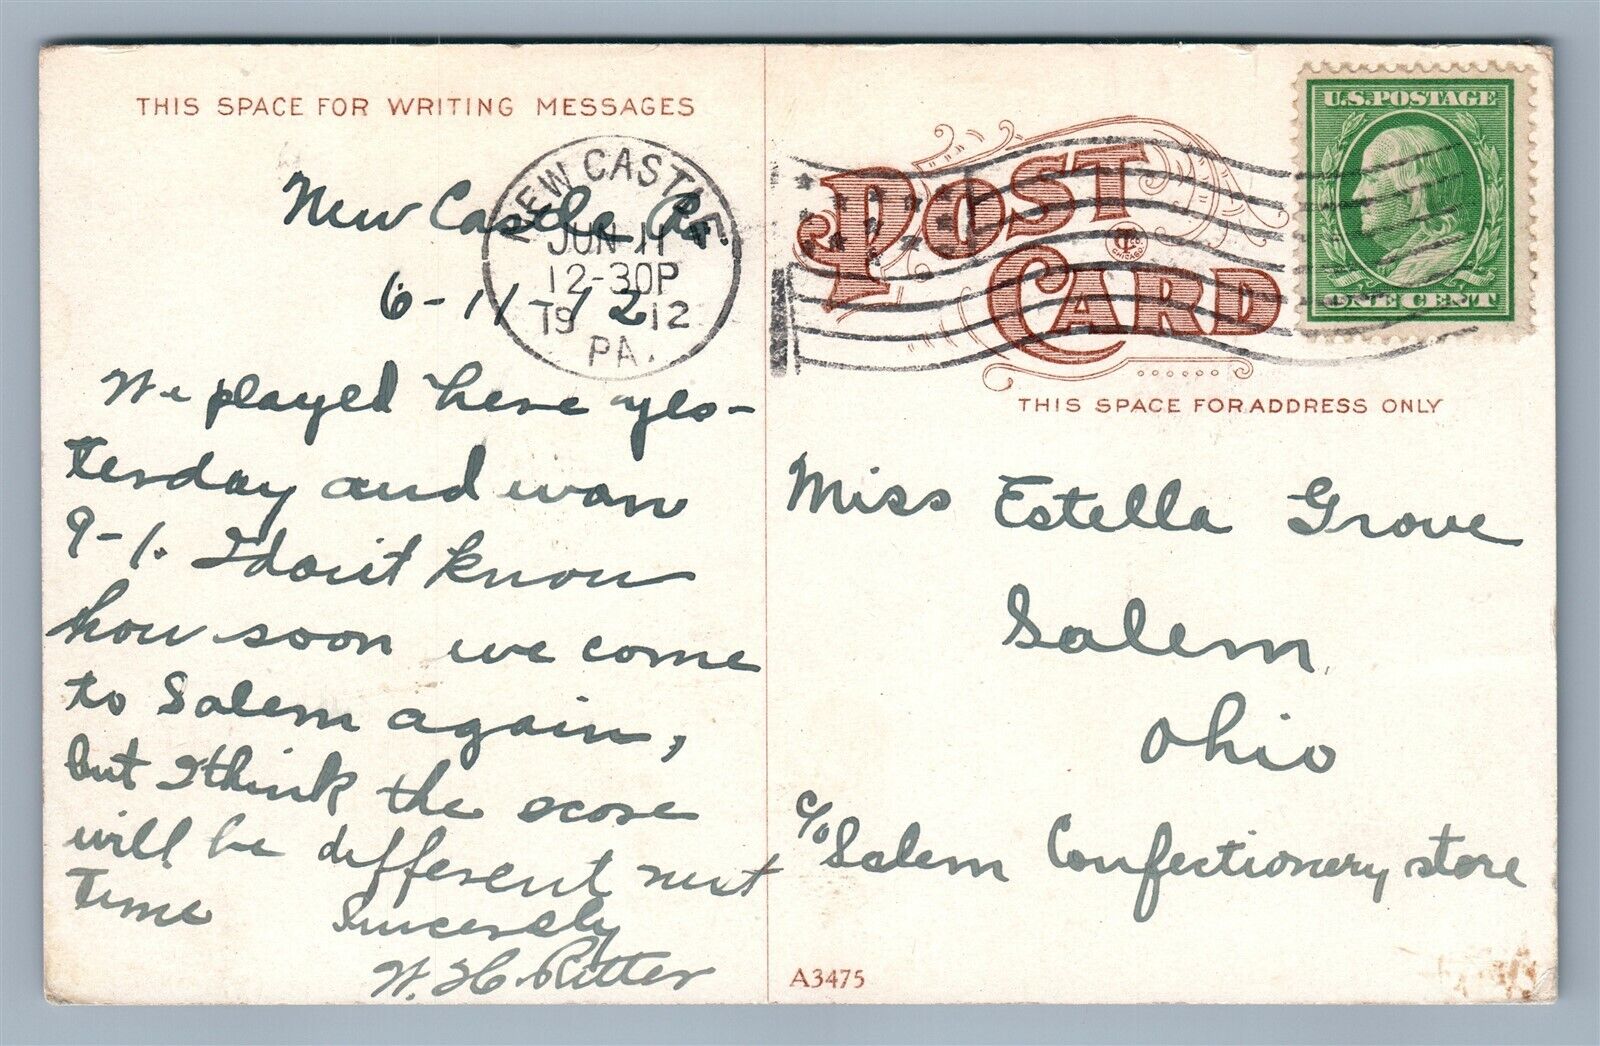 THIS SPACE FOR WRITING MESSAGES
NEW CASTLE
JUN 11
12-30P
19 12
PA.
New Castle Pa.
6-11-12
We played here yes-
terday and won
9-1. I don't know
how soon we come
to Salem again,
but I think the score
will be different next
time
Sincerely
W. H. Ritter
POST
CARD
CHICAGO
U.S. POSTAGE
ONE CENT
THIS SPACE FOR ADDRESS ONLY
Miss Estella Grove
Salem,
Ohio
c/o Salem Confectionery store
A3475